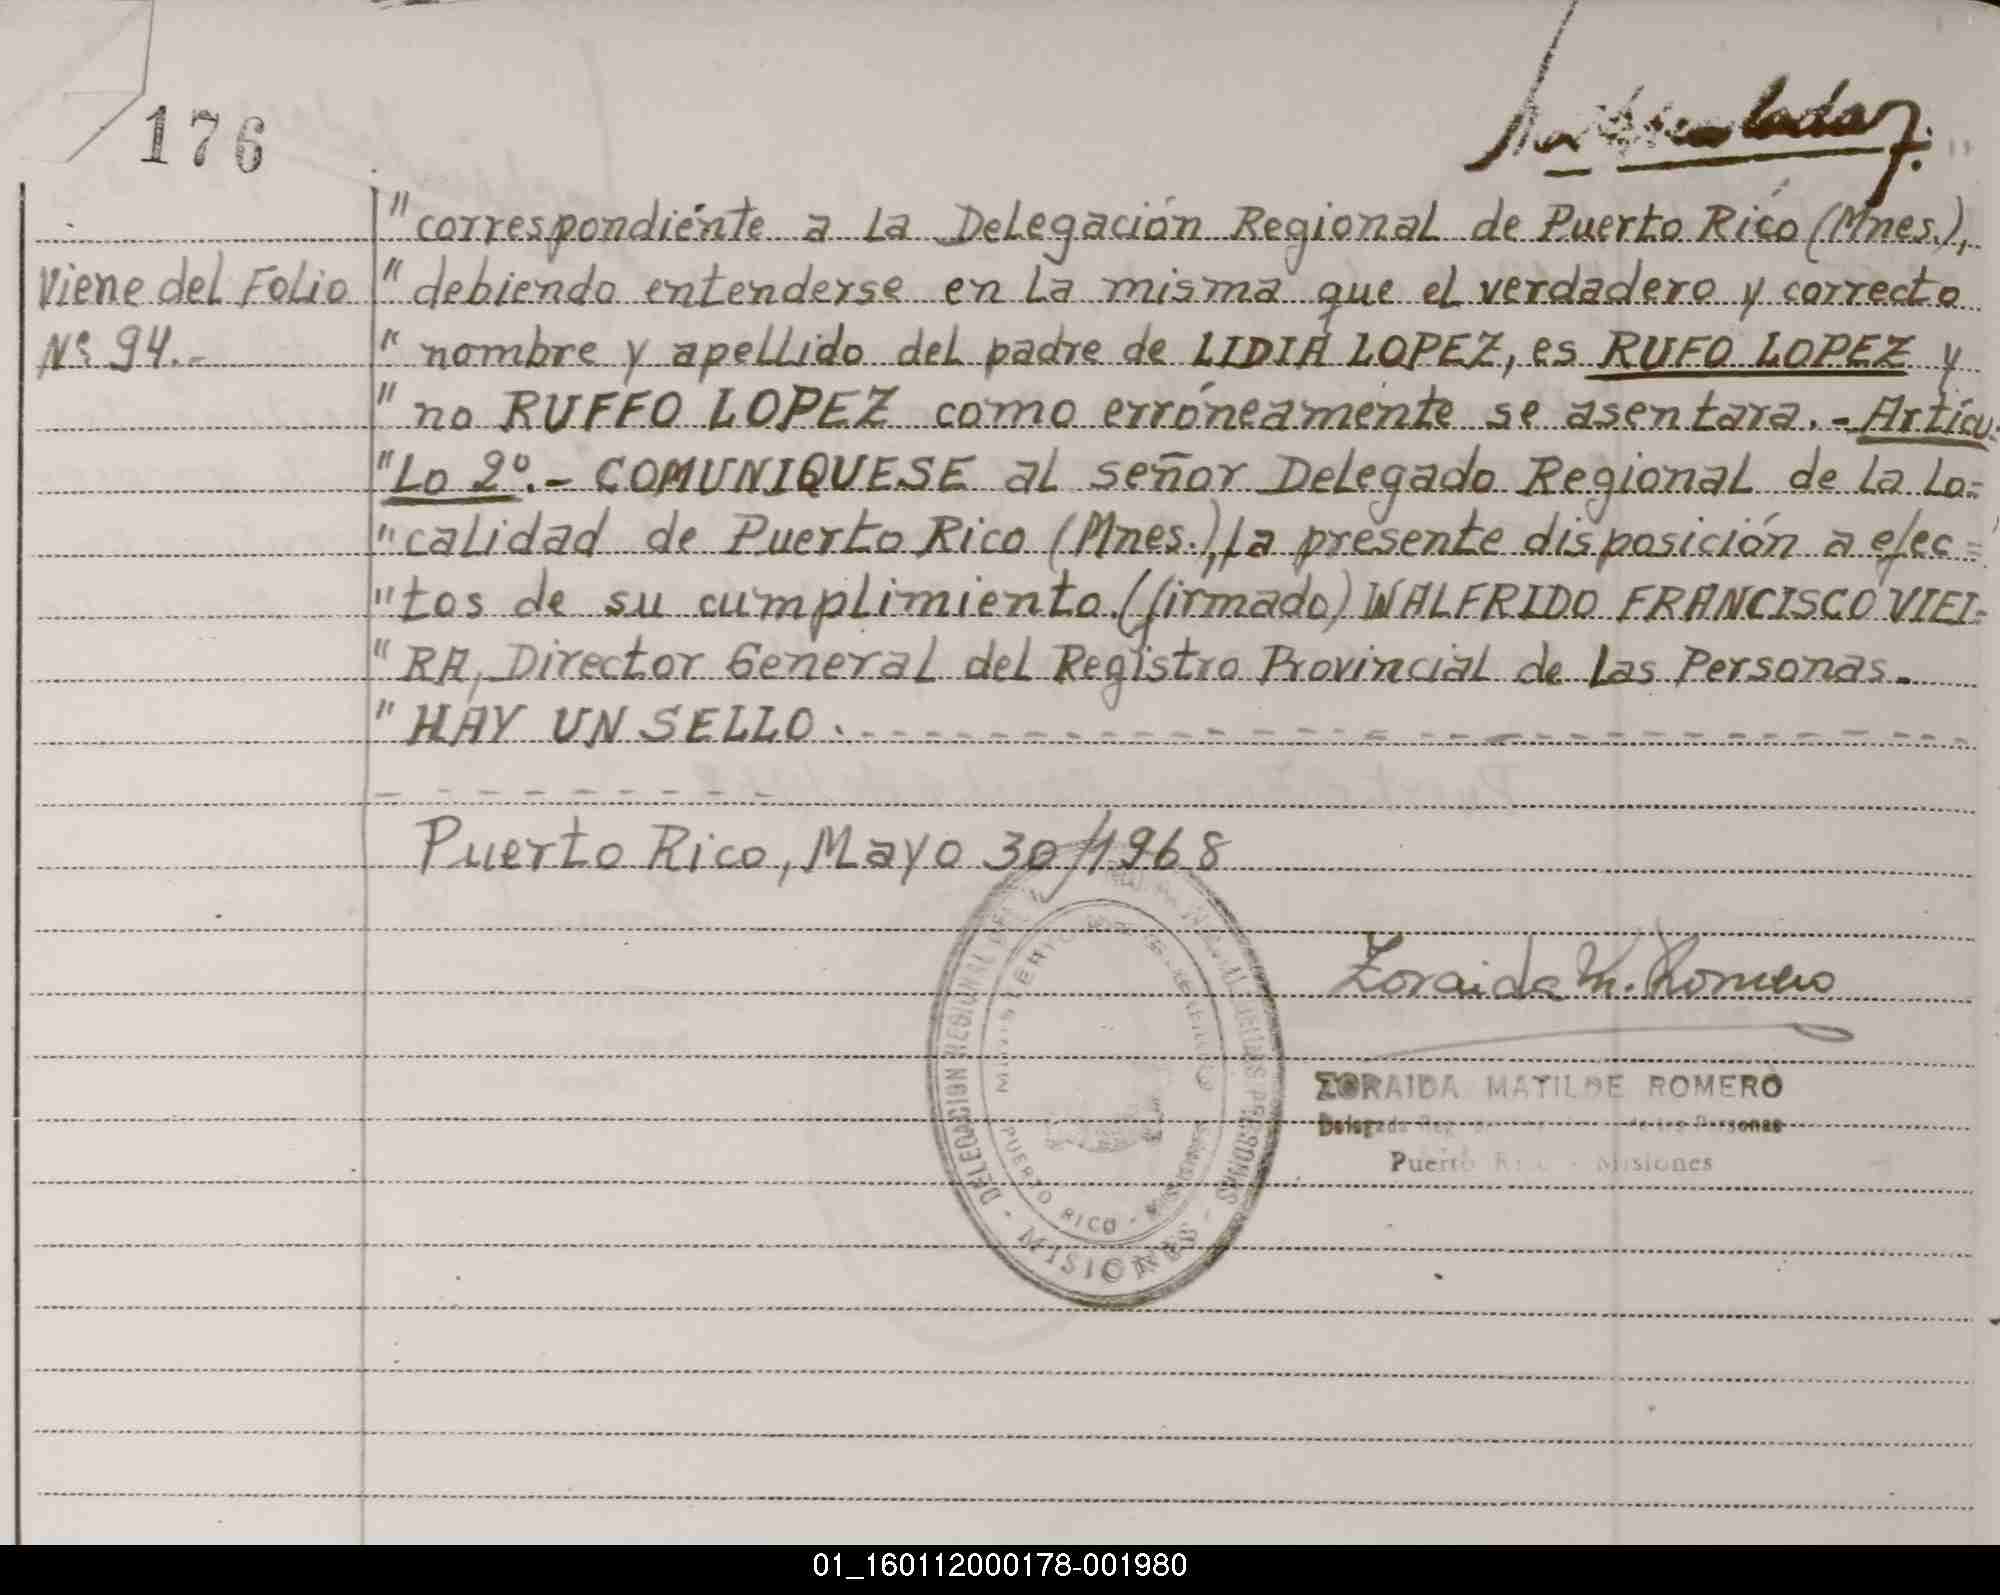 176
" correspondiente a la Delegación Regional de Puerto Rico (Mnes.),
Viene del Folio
" debiendo entenderse en la misma que el verdadero y correcto
Nº 94.-
" nombre y apellido del padre de LIDIA LOPEZ, es RUFO LOPEZ y
" no RUFFO LOPEZ como erróneamente se asentara.- Artícu-
" lo 2º.- COMUNIQUESE al señor Delegado Regional de la Lo=
" calidad de Puerto Rico (Mnes.), la presente disposición a efec=
" tos de su cumplimiento. (firmado) WALFRIDO FRANCISCO VIEI=
" RA, Director General del Registro Provincial de las Personas.-
" HAY UN SELLO.
Puerto Rico, Mayo 30/1968
Zoraida M. Romero
ZORAIDA MATILDE ROMERO
Delegada de las Personas
Puerto Rico - Misiones
DELEGACION REGIONAL DEL DE LAS PERSONAS
- MISIONES -
MINISTERIO
PUERTO RICO - MISIONES
01_160112000178-001980